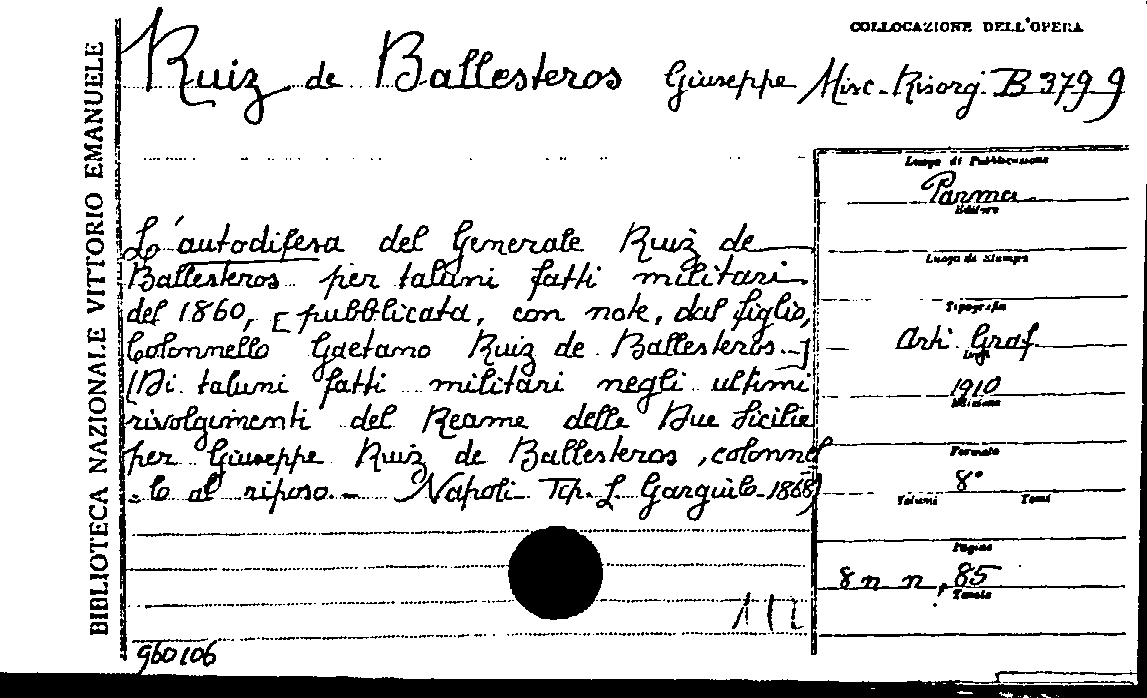 COLLOCAZIONE DELL'OPERA
Ruiz de Ballesteros Giuseppe Misc. Risorg. B 379 9
BIBLIOTECA NAZIONALE VITTORIO EMANUELE
L'autodifesa del Generale Ruiz de
Ballesteros per taluni fatti militari
del 1860, [pubblicata, con note, dal figlio,
Colonnello Gaetano Ruiz de Ballesteros.-]
(Di taluni fatti militari negli ultimi
rivolgimenti del Reame delle Due Sicilie
per Giuseppe Ruiz de Ballesteros, colonnel
-lo al riposo.- Napoli Tip. L. Gargiulo-1868)
Luogo di Pubblicazione
Parma
Editore
Luogo di Stampa
Tipografia
Arti Graf.
1910
Edizione
Formato
8°
Volumi Tomi
Pagine
8 n n, 85
Tavole
960106